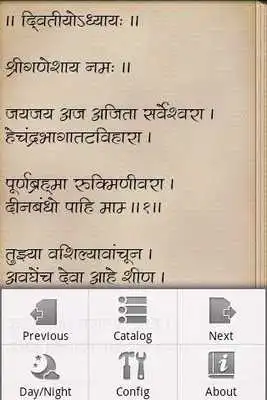 ॥ द्वितीयोऽध्यायः ॥
श्रीगणेशाय नमः ॥
जयजय अज अजिता सर्वेश्वरा ।
हेचंद्रभागातटविहारा ।
पूर्णब्रह्मा रुक्मिणीवरा ।
दीनबंधो पाहि माम ॥१॥
तुझ्या वशिल्यावांचून ।
अवघेंच देवा आहे शीण ।
Previous Catalog Next
Day/Night Config About